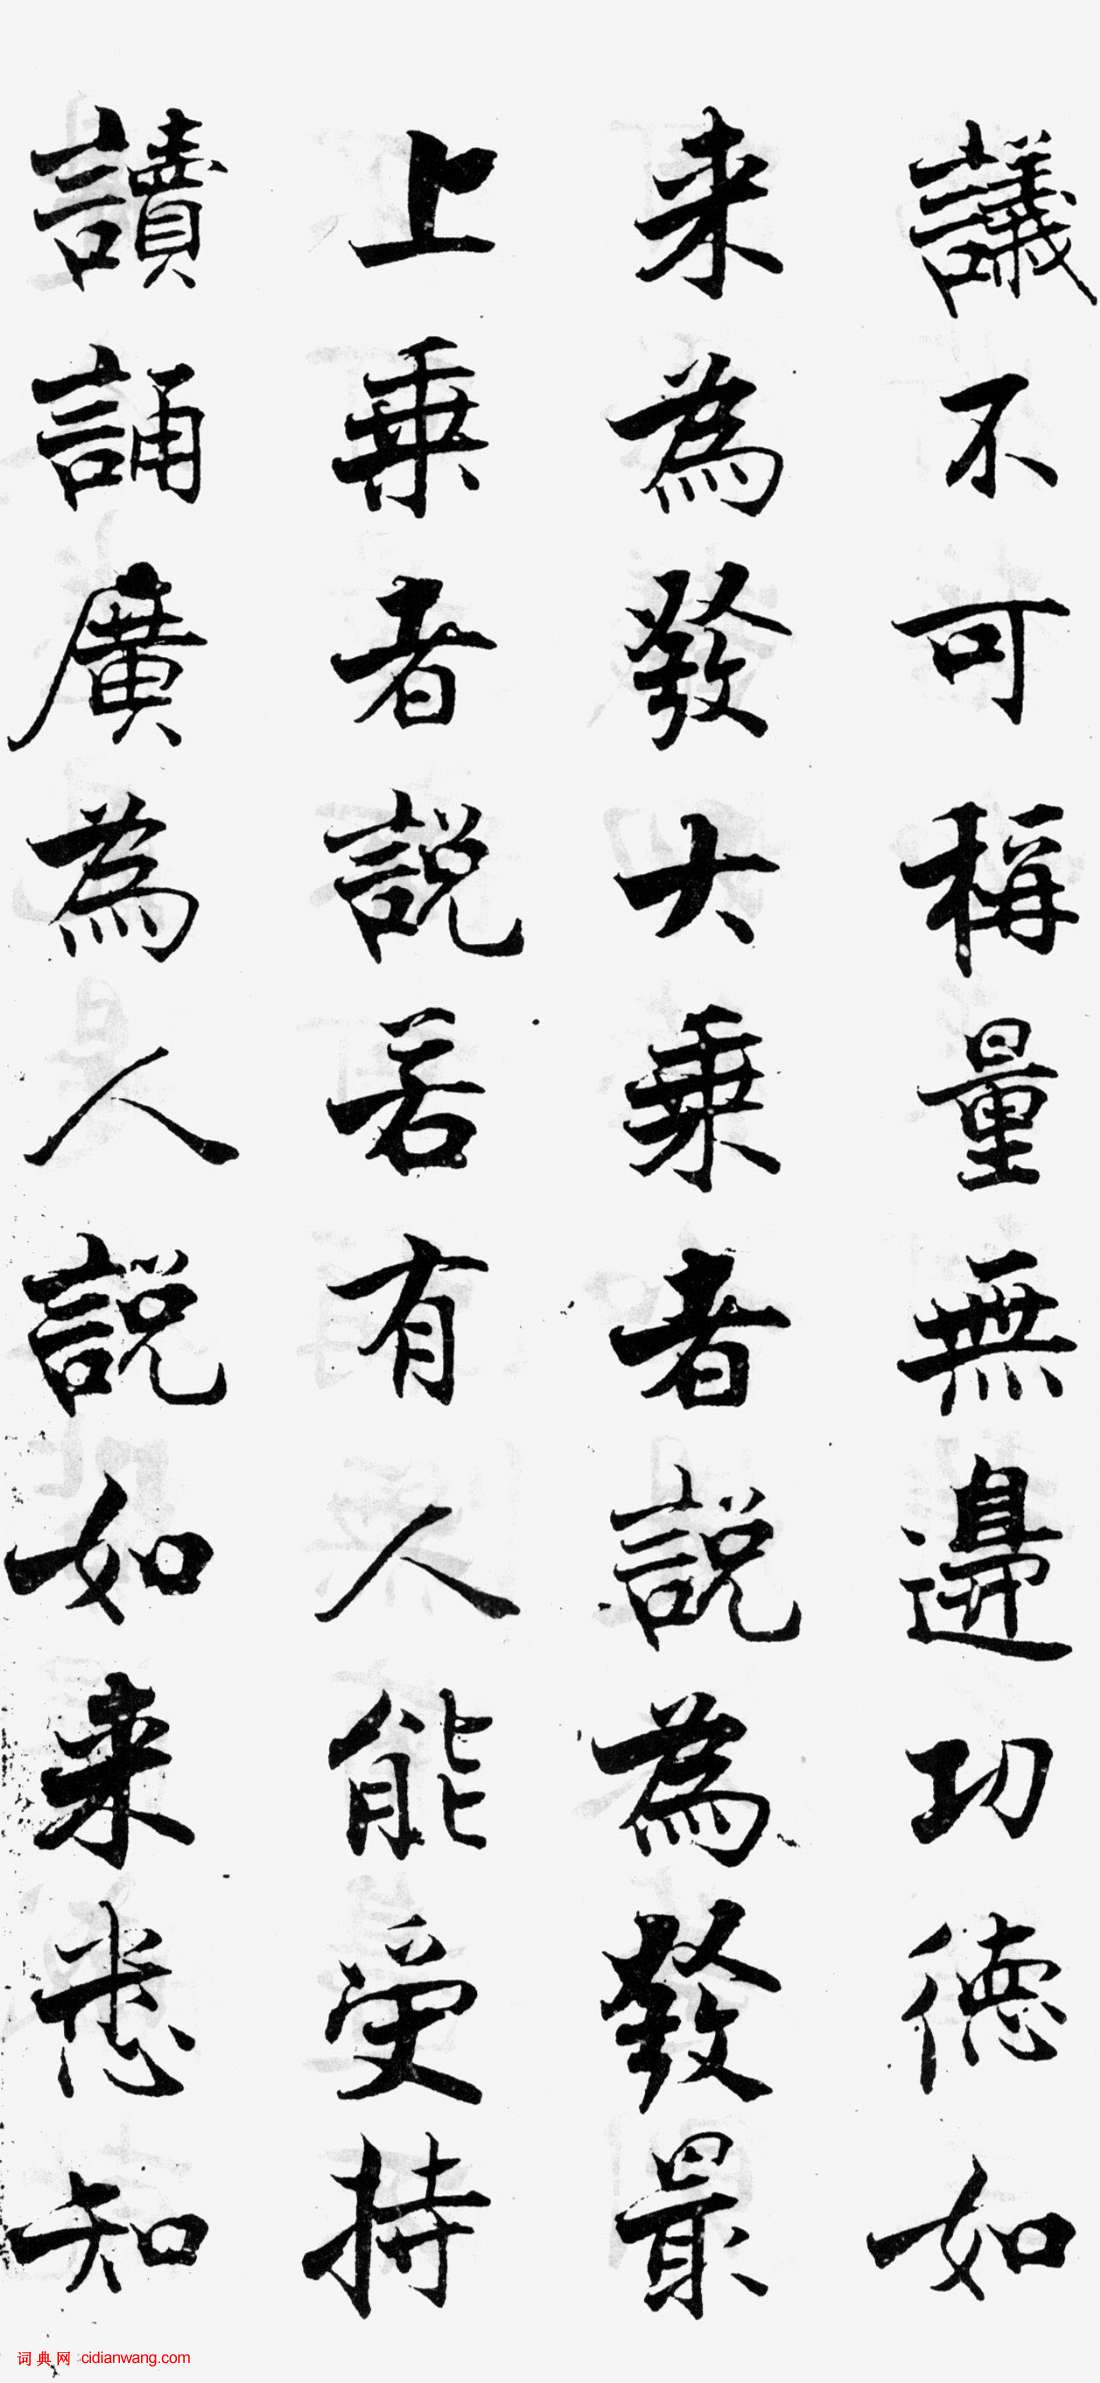 議不可稱量無邊功德如
来為發大乗者説為發最
上乗者説若有人能受持
讀誦廣為人説如来悉知
词典网 cidianwang.com